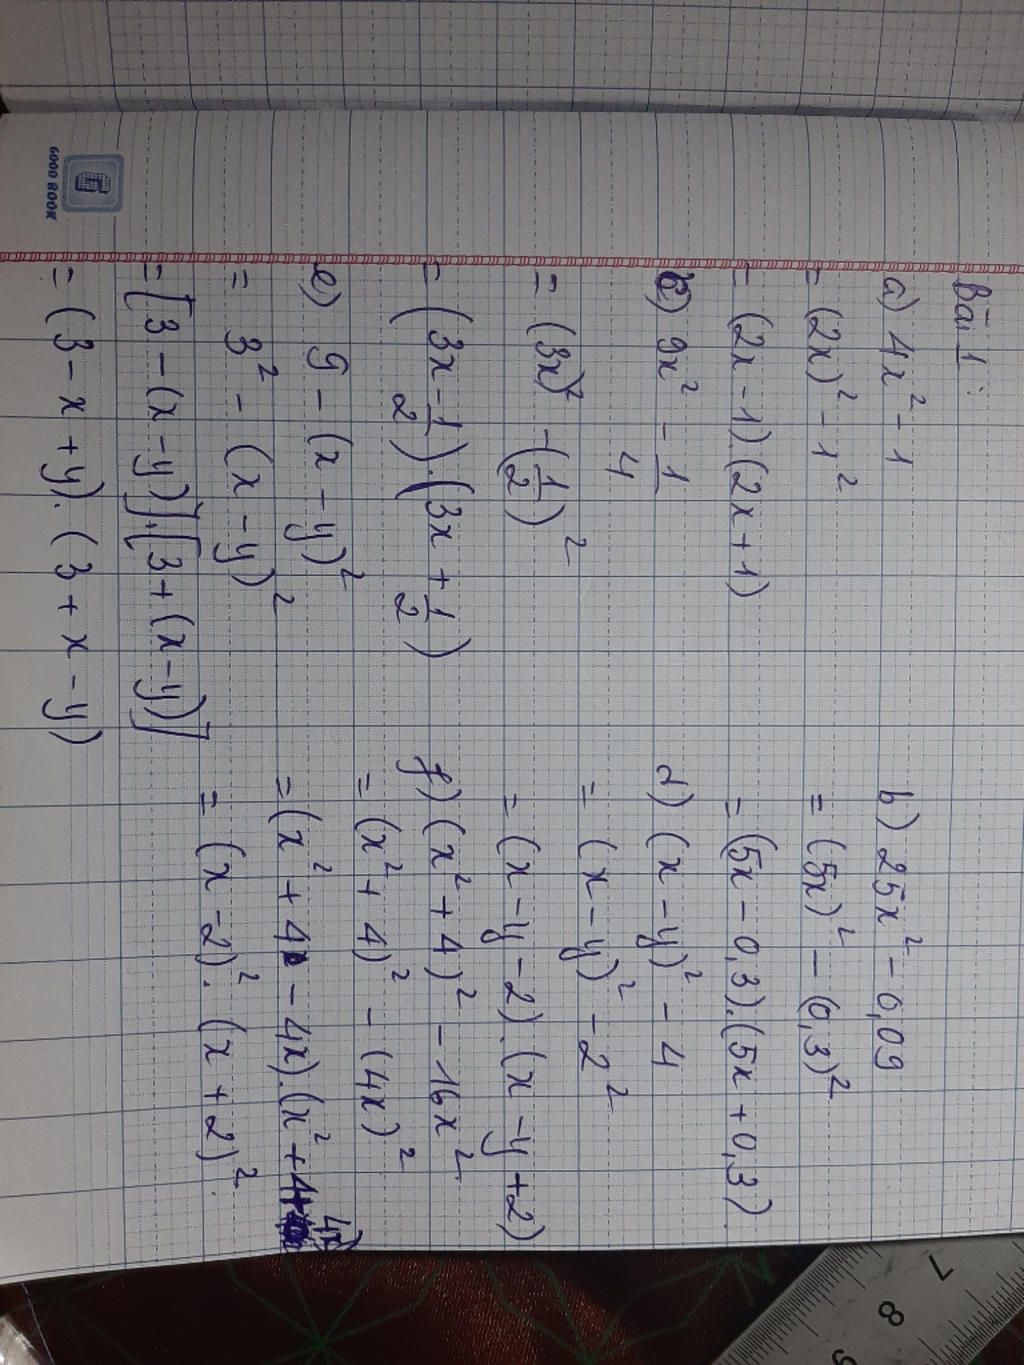 Bài 1:
a) 4x² - 1
= (2x)² - 1²
= (2x - 1).(2x + 1)
c) 9x² - 1/4
= (3x)² - (1/2)²
= (3x - 1/2).(3x + 1/2)
e) 9 - (x - y)²
= 3² - (x - y)²
= [3 - (x - y)].[3 + (x - y)]
= (3 - x + y).(3 + x - y)
b) 25x² - 0,09
= (5x)² - (0,3)²
= (5x - 0,3).(5x + 0,3)
d) (x - y)² - 4
= (x - y)² - 2²
= (x - y - 2).(x - y + 2)
f) (x² + 4)² - 16x²
= (x² + 4)² - (4x)²
= (x² + 4 - 4x).(x² + 4 + 4x)
= (x - 2)².(x + 2)²
G
6000 BOOK
7
8
9